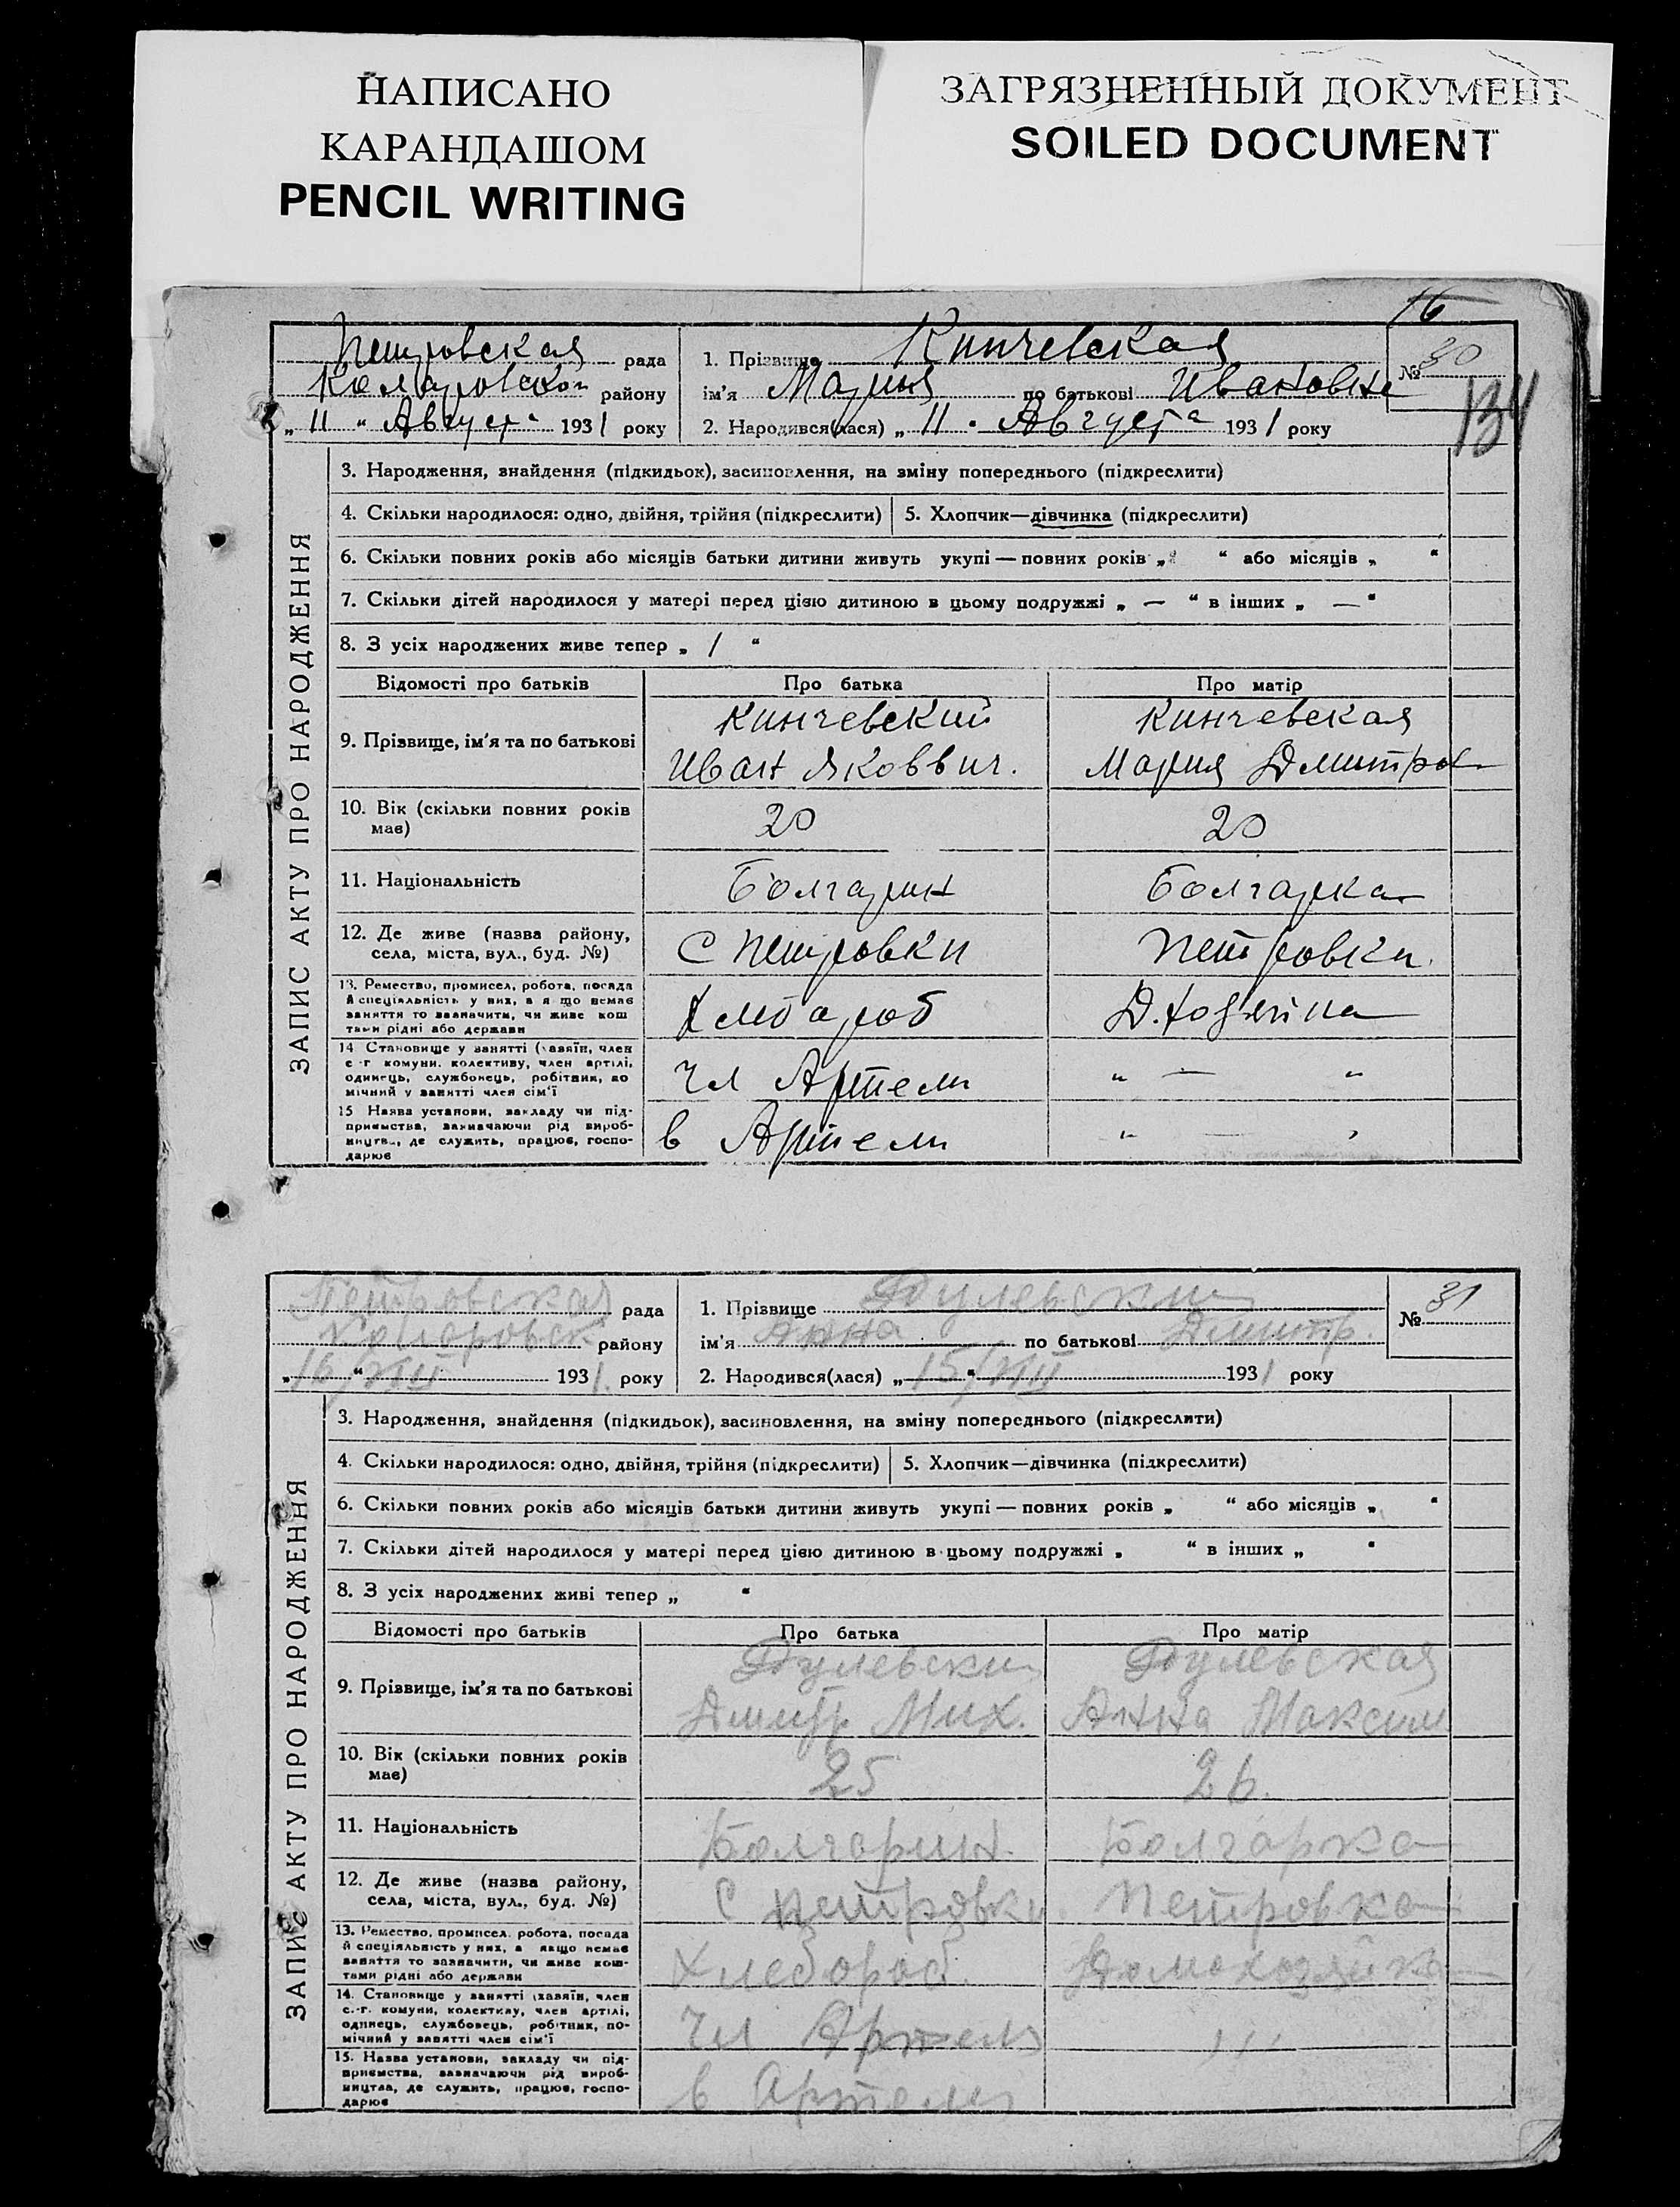 НАПИСАНО
КАРАНДАШОМ
PENCIL WRITING
ЗАГРЯЗНЕННЫЙ ДОКУМЕНТ
SOILED DOCUMENT
16
Петровская рада
Коларовской району
„ 11 “ Августа 1931 року
1. Прізвище Кинчевская
ім'я Мария по батькові Ивановна
2. Народився(лася) „ 11 . Августа 1931 року
№ 30
134
ЗАПИС АКТУ ПРО НАРОДЖЕННЯ
3. Народження, знайдення (підкидьок), засиновлення, на зміну попереднього (підкреслити)
4. Скільки народилося: одно, двійня, трійня (підкреслити) 5. Хлопчик—дівчинка (підкреслити)
6. Скільки повних років або місяців батьки дитини живуть укупі — повних років „ “ або місяців „ “
7. Скільки дітей народилося у матері перед цією дитиною в цьому подружжі „ — “ в інших „ — “
8. З усіх народжених живе тепер „ 1 “
Відомості про батьків Про батька Про матір
9. Прізвище, ім'я та по батькові
Кинчевский
Иван Яковвич.
Кинчевская
Мария Дмитров
10. Вік (скільки повних років
має)
20 20
11. Національність Болгарин Болгарка
12. Де живе (назва району,
села, міста, вул., буд. №)
С Петровки Петровки.
13. Ремество, промисел, робота, посада
й спеціяльність у них, а якщо немає
заняття то зазначити, чи живе кош
тами рідні або держави
Хлебароб
14 Становище у занятті (хазяїн, член
с-г комуни, колективу, член артілі,
одинець, службовець, робітник, по
мічний у занятті член сім'ї
чл Артели „ — “
15 Назва установи, закладу чи під-
приємства, зазначаючи рід вироб-
ництва, де служить, працює, госпо-
дарює
в Артели „ —
Петровская рада
Коларовск району
„ 16/VIII “ 1931. року
1. Прізвище Дулевский
ім'я Анна по батькові Дмитр.
2. Народився(лася) „ 15/VIII “ 1931 року
№ 31
ЗАПИС АКТУ ПРО НАРОДЖЕННЯ
3. Народження, знайдення (підкидьок), засиновлення, на зміну попереднього (підкреслити)
4. Скільки народилося: одно, двійня, трійня (підкреслити) 5. Хлопчик—дівчинка (підкреслити)
6. Скільки повних років або місяців батьки дитини живуть укупі — повних років „ “ або місяців „ “
7. Скільки дітей народилося у матері перед цією дитиною в цьому подружжі „ “ в інших „ “
8. З усіх народжених живі тепер „ “
Відомості про батьків Про батька Про матір
9. Прізвище, ім'я та по батькові
Дулевский
Дмитр Мих.
Дулевская
Анна Максим
10. Вік (скільки повних років
має)
25 26.
11. Національність Болгарин. Болгарка
12. Де живе (назва району,
села, міста, вул., буд. №)
С Петровки. Петровка
13. Ремество, промисел, робота, посада
й спеціяльність у них, а якщо немає
заняття то зазначити, чи живе кош-
тами рідні або держави
Хлебороб. Домохозяйка
14. Становище у занятті (хазяїн, член
с.-г. комуни, колективу, член артілі,
одинець, службовець, робітник, по-
мічний у занятті член сім'ї
Чл Артели
15. Назва установи, закладу чи під-
приємства, зазначаючи рід вироб-
ництва, де служить, працює, госпо-
дарює
в Артели